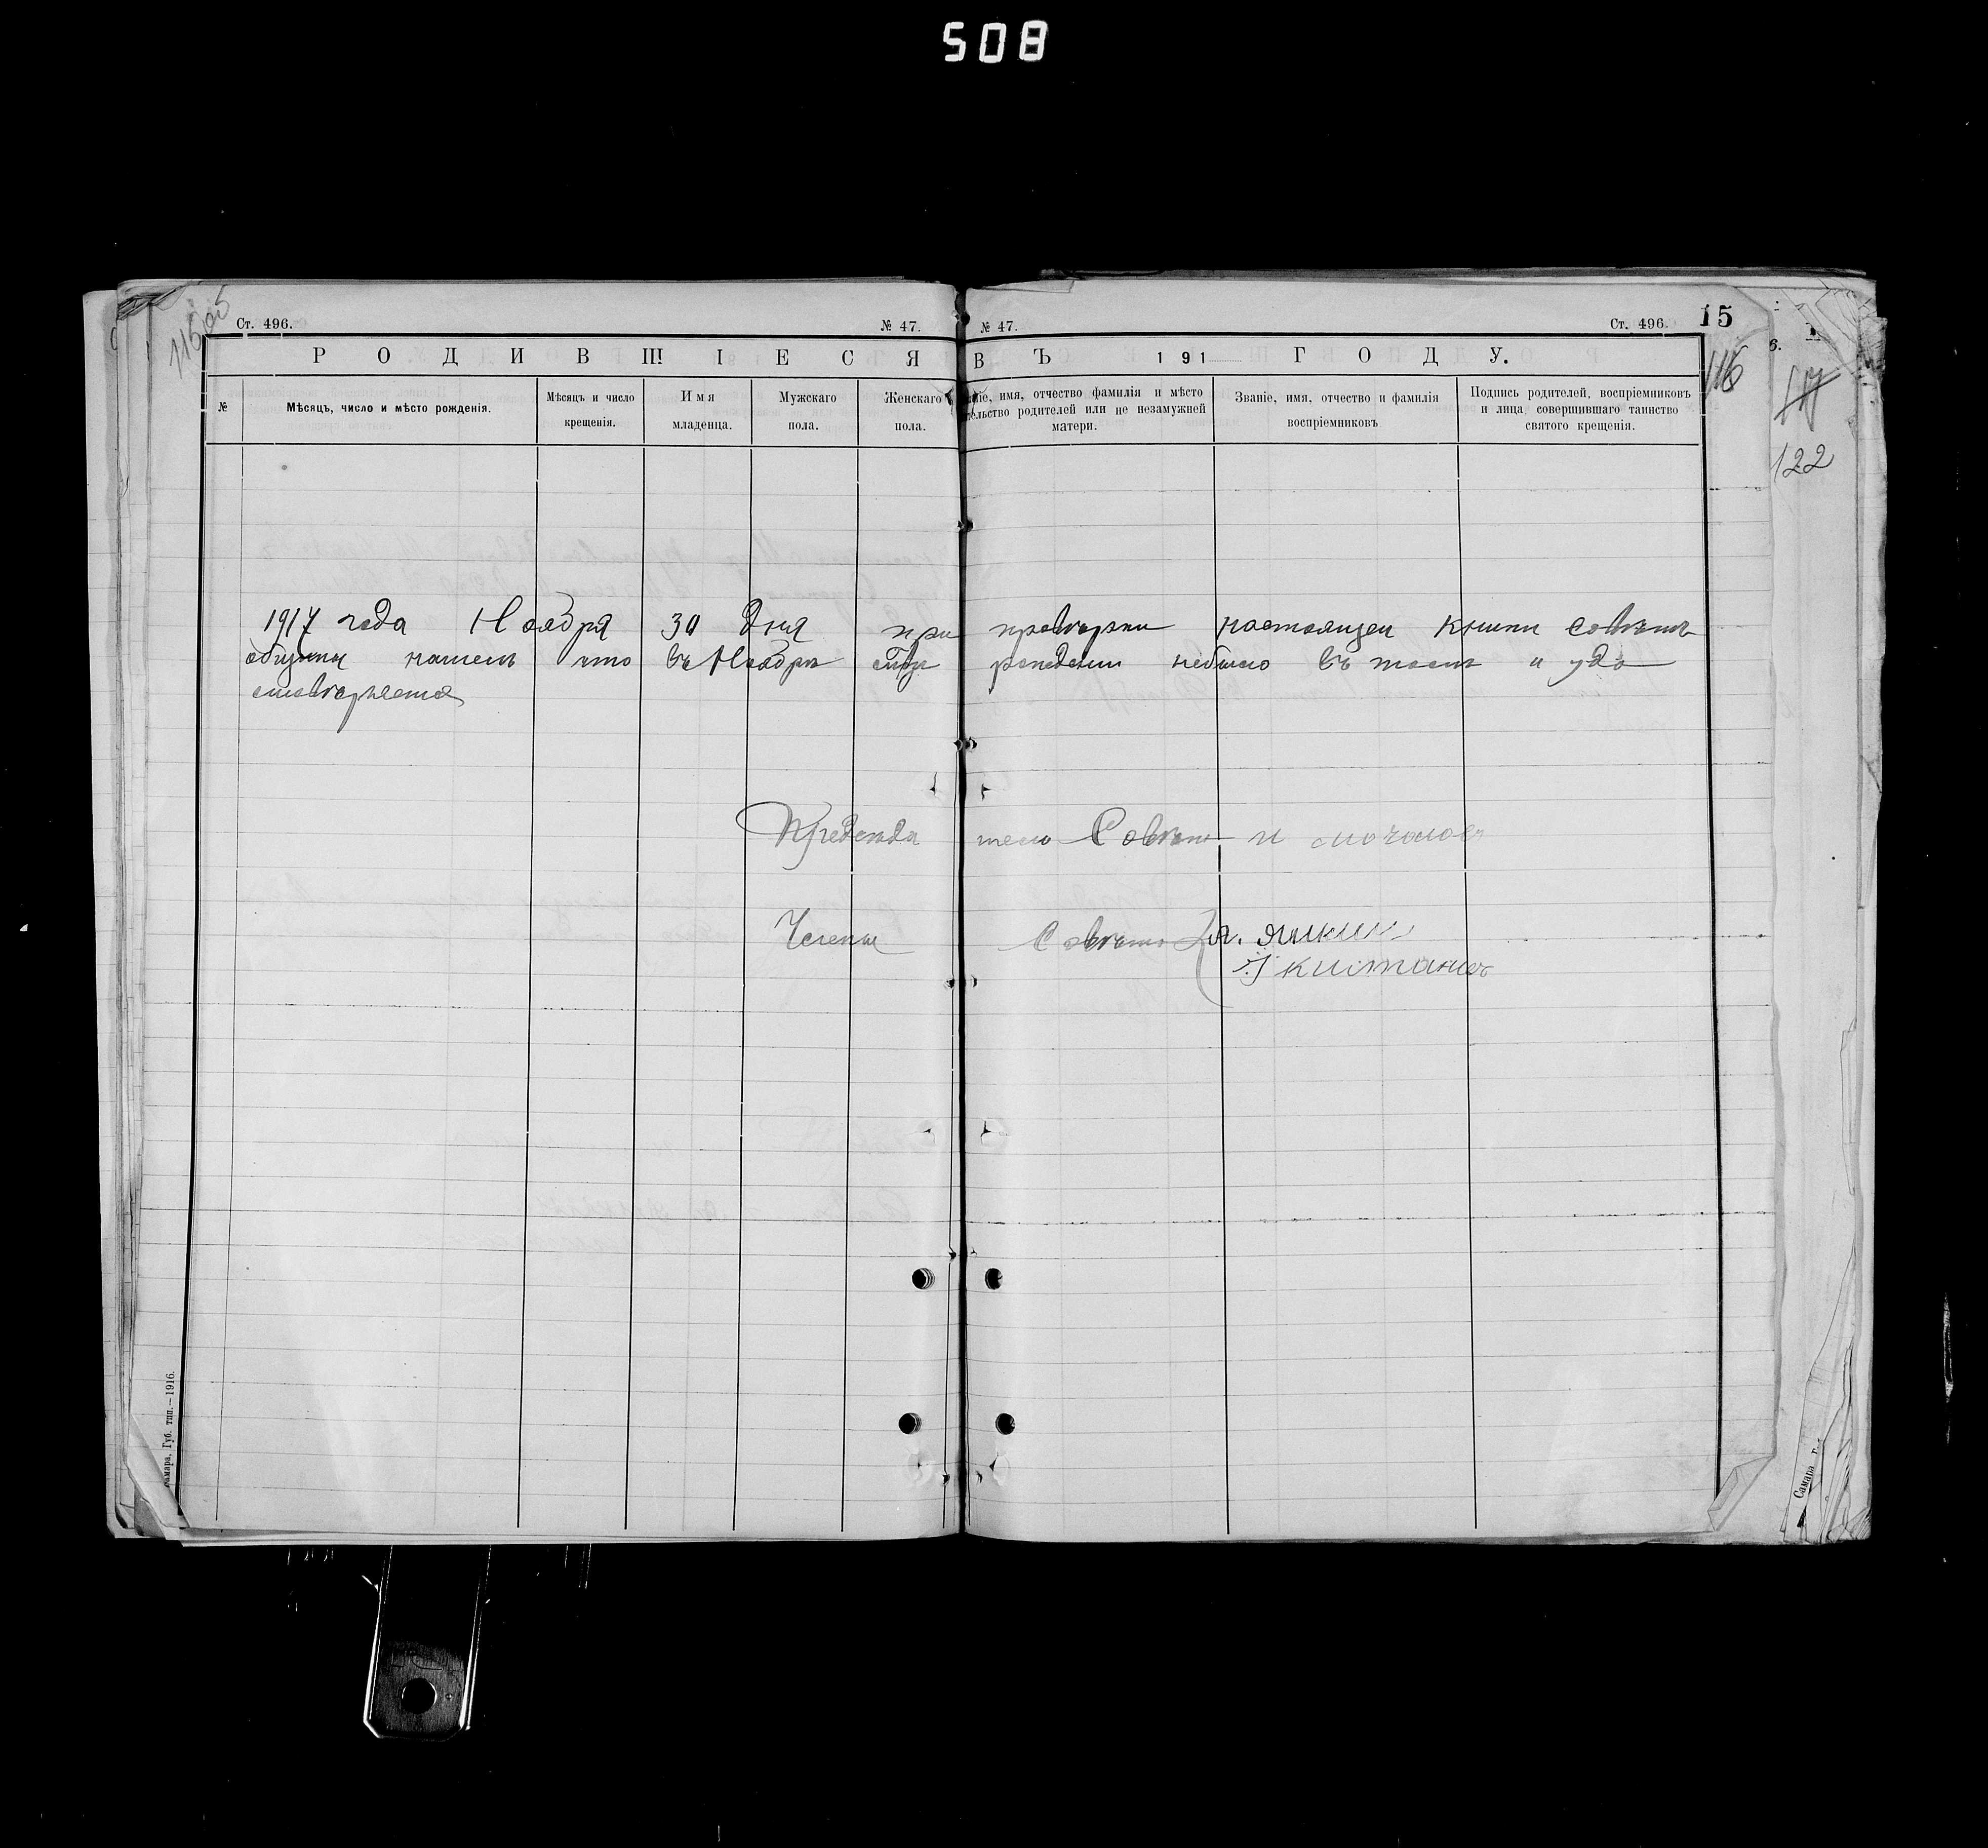 508
Ст. 496.
№ 47.
№ 47.
Ст. 496.
15
116
122
РОДИВШІЕСЯ ВЪ 191 ГОДУ.
№
Мѣсяцъ, число и мѣсто рожденія.
Мѣсяцъ и число
крещенія.
Имя
младенца.
Мужскаго
пола.
Женскаго
пола.
ніе, имя, отчество фамилія и мѣсто
ельство родителей или не незамужней
матери.
Званіе, имя, отчество и фамилія
воспріемниковъ
Подпись родителей, воспріемниковъ
и лица совершившаго таинство
святого крещенія.
1917 года Ноября 30 дня при провѣрки настоящей книги Совѣтъ
общины нашелъ что въ Ноябрѣ рождении небыло въ томъ и удо
стовѣряется
Председа телъ Совѣта
Члены Совѣта Я. Яшкин
Китанев
Самара, Губ. тип.—1916.
Самара